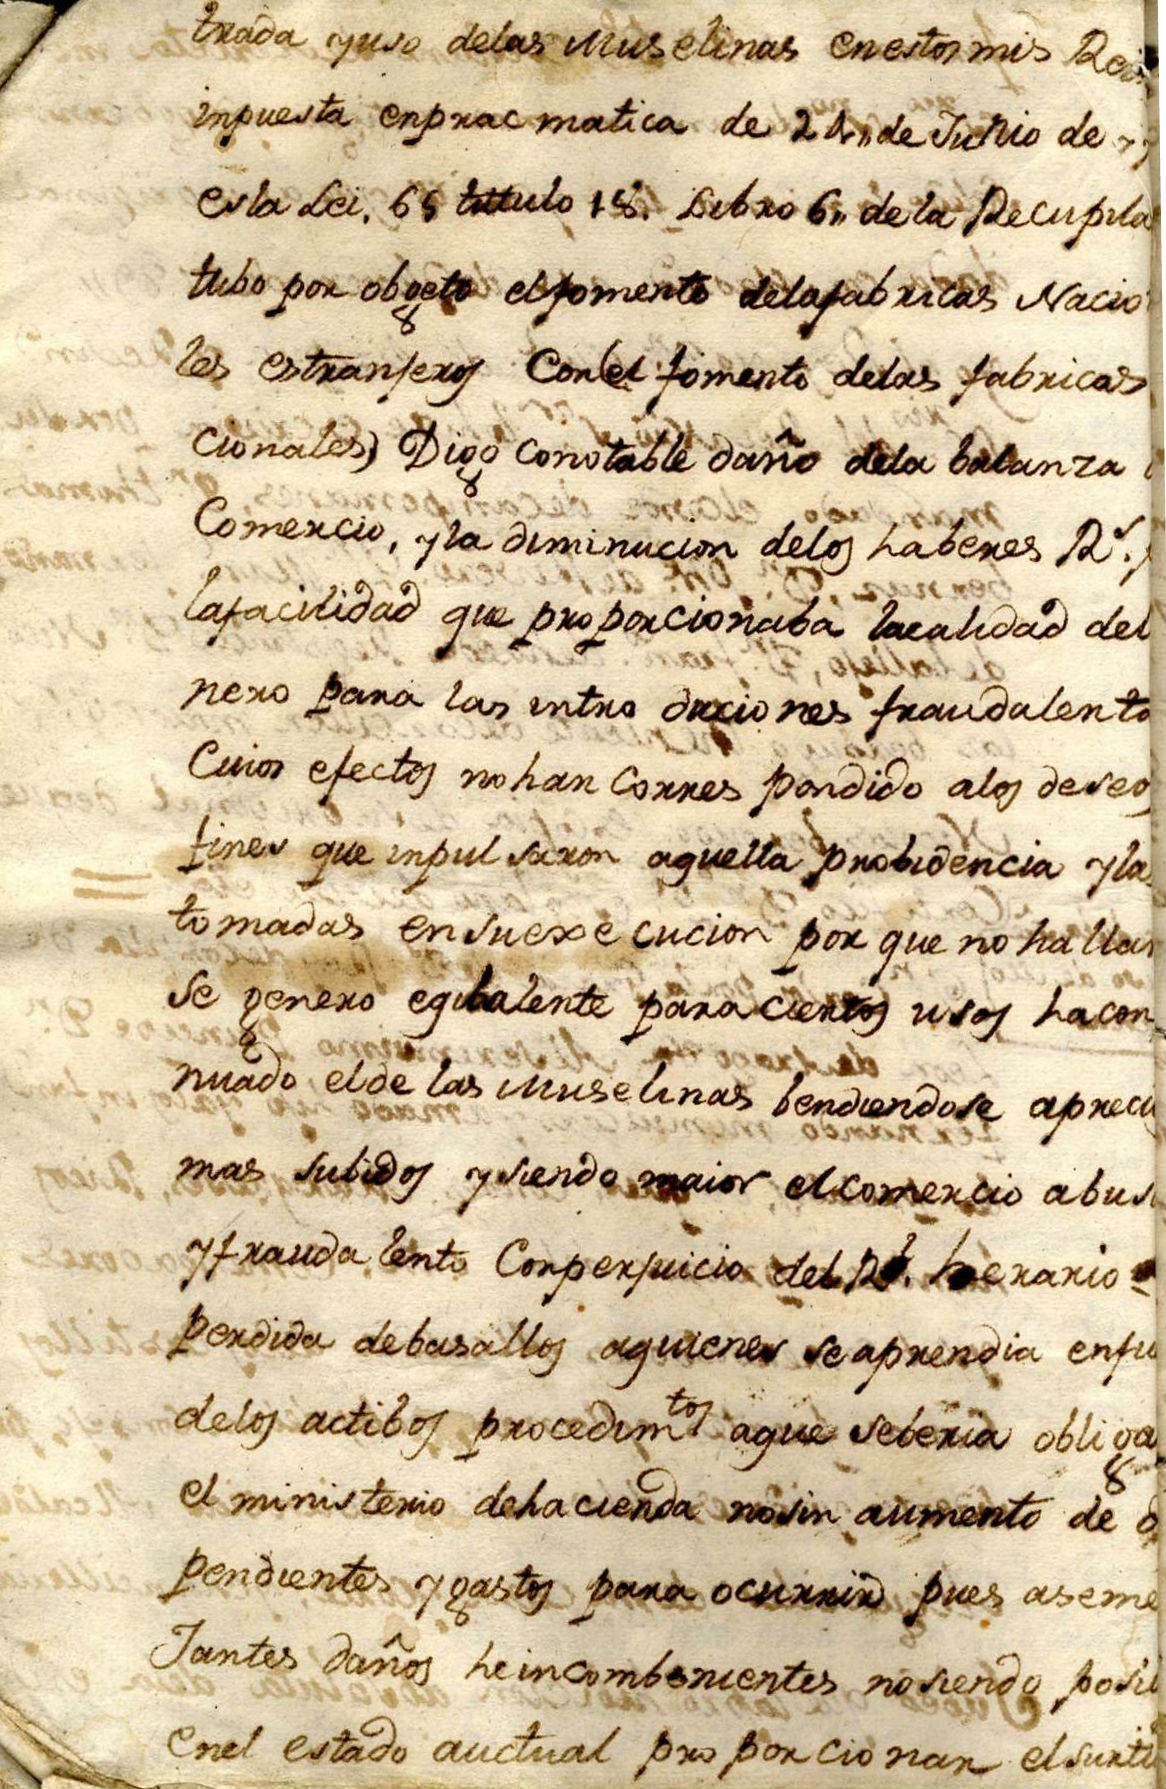 trada yuso delas Muselinas enestos mis Rei
inpuesta enpracmatica de 24,, de Junio de
esla Lei. 65 tittulo 18. Libro 6,, de la Recupila
tubo por obgeto elfomento delafabricas Nacio
les estranjeros Con el fomento delas fabricas
cionales) Digo conotable daño dela balanza
Comercio, yla diminucion delos haberes Rs.
lafacilidad que proporcionaba lacalidad del
nero para las introducciones fraudalento
Cuios efectos nohan Corres pondido alos deseos
fines que inpulsaron aquella probidencia yla
tomadas ensuexecucion por que no hallan
se genero equibalente para ciertos usos hacon
nuado elde las Muselinas bendiendose apreci
mas subidos ysiendo maior elcomercio abus
yfraudalento Conperjuicio del Rl. herario
perdida debasallos aquienes seaprendia enfu
delos actibos procedimtos aque seberia obliga
el ministerio dehacienda nosin aumento de d
pendientes ygastos para ocurrir pues aseme
Jantes daños heincombenientes nosiendo posi
enel estado auctual proporcionar elsurti